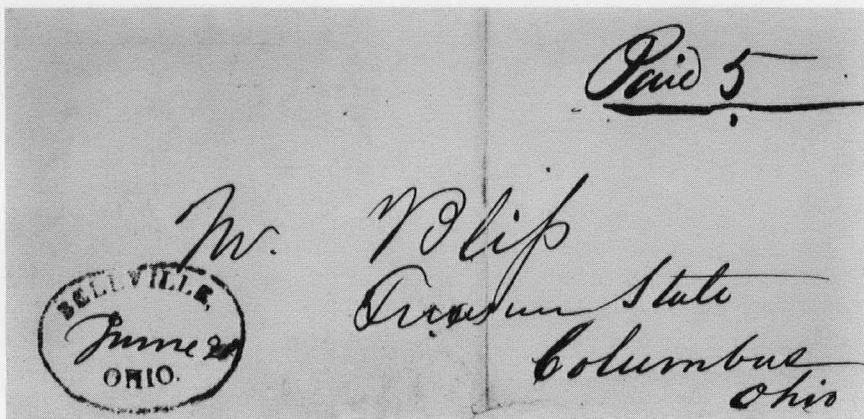 Paid 5
Mr. Bliſs
Treasurer State
Columbus
Ohio
BELLVILLE,
June 20
OHIO.